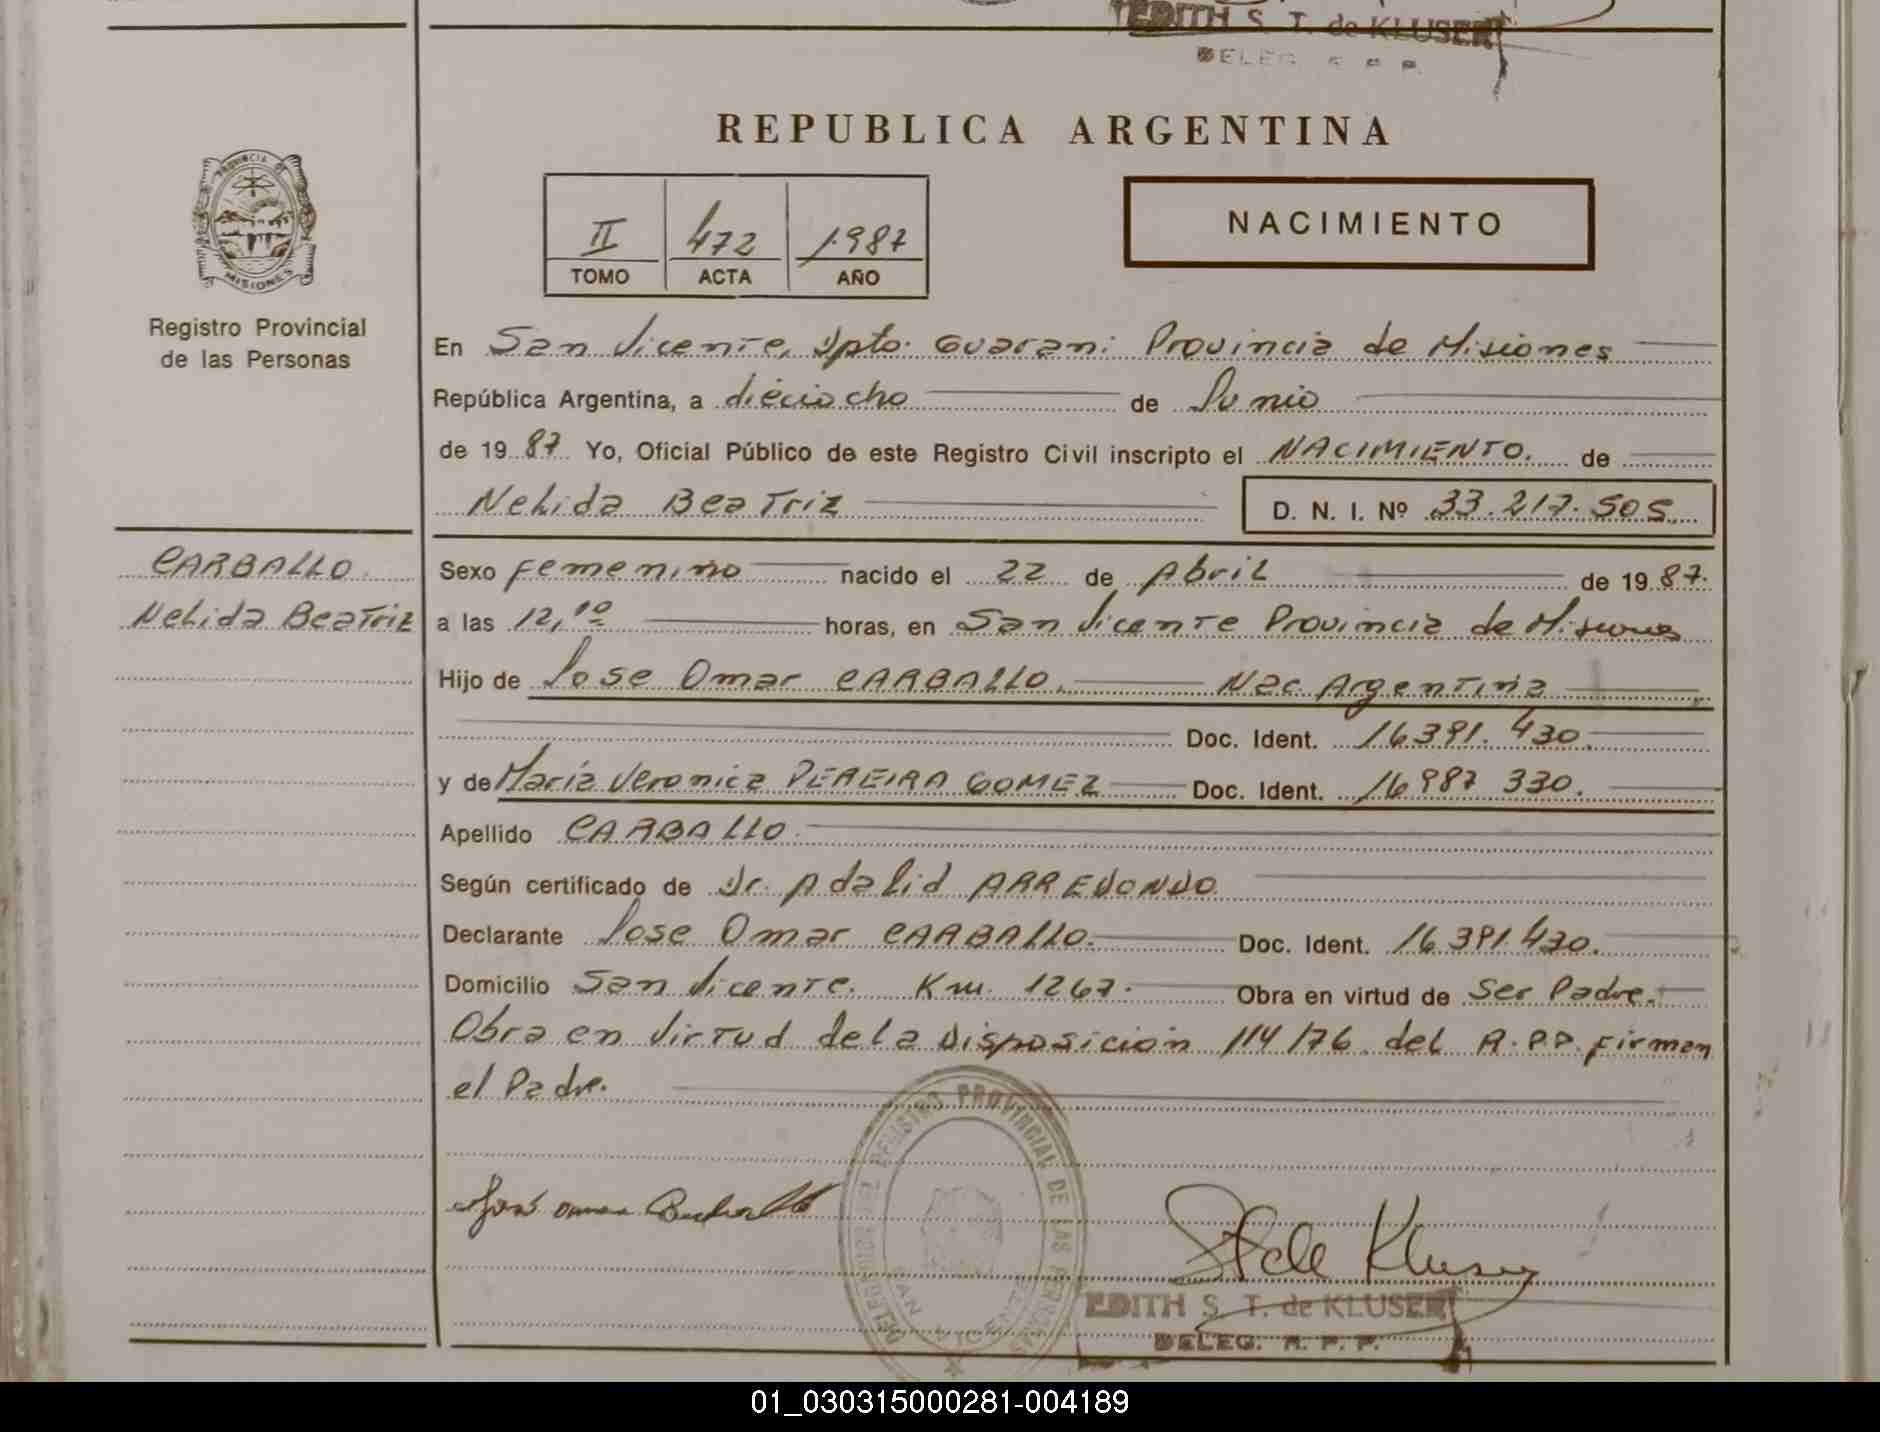 EDITH S. T. de KLUSER
DELEG. R. P. P.
REPUBLICA ARGENTINA
PROVINCIA DE MISIONES
Registro Provincial
de las Personas
II 472 1987
TOMO ACTA AÑO
NACIMIENTO
En San Vicente, Dpto. Guarani Provincia de Misiones
República Argentina, a dieciocho de Junio
de 19 87 Yo, Oficial Público de este Registro Civil inscripto el NACIMIENTO. de
Nelida Beatriz D. N. I. Nº 33.217.505
CARBALLO
Nelida Beatriz
Sexo femenino nacido el 22 de Abril de 19 87.
a las 12,10 horas, en San Vicente Provincia de Misiones
Hijo de Jose Omar CARBALLO. Nac Argentina
Doc. Ident. 16.391.430.
y de María Veronica PEREIRA GOMEZ Doc. Ident. 16 987 330.
Apellido CARBALLO.
Según certificado de Dr. Adalid ARREDONDO
Declarante Jose Omar CARBALLO. Doc. Ident. 16.391.430.
Domicilio San Vicente. Km. 1267. Obra en virtud de Ser Padre.
Obra en Virtud de la Disposición 114/76 del R.P.P. firman
el Padre.
DELEGACION DEL REGISTRO PROVINCIAL DE LAS PERSONAS
SAN VICENTE
José Omar Carballo
STde Kluser
EDITH S. T. de KLUSER
DELEG. R. P. P.
01_030315000281-004189